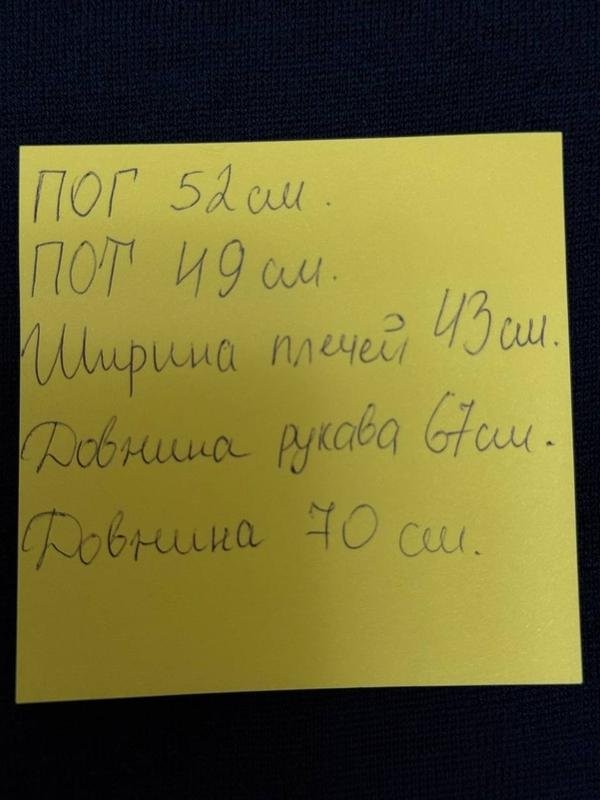 ПОГ 52см.
ПОТ 49см.
Ширина плечей 43см.
Довжина рукава 67см.
Довжина 70 см.